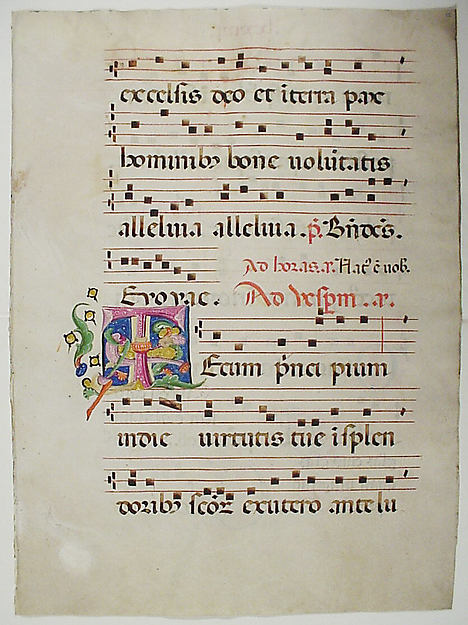 excelsis deo et i terra pax
hominibȝ bone volūtatis
alleluia alleluia. p̄. Bn̄dc̄s.
Ad horas. a. Nat᷒ ē nob.
Evovae. Ad vesp̄m. a.
Tecum p̄nci pium
indie virtutis tue i splen
doribȝ sc̄oꝝ ex utero ante lu